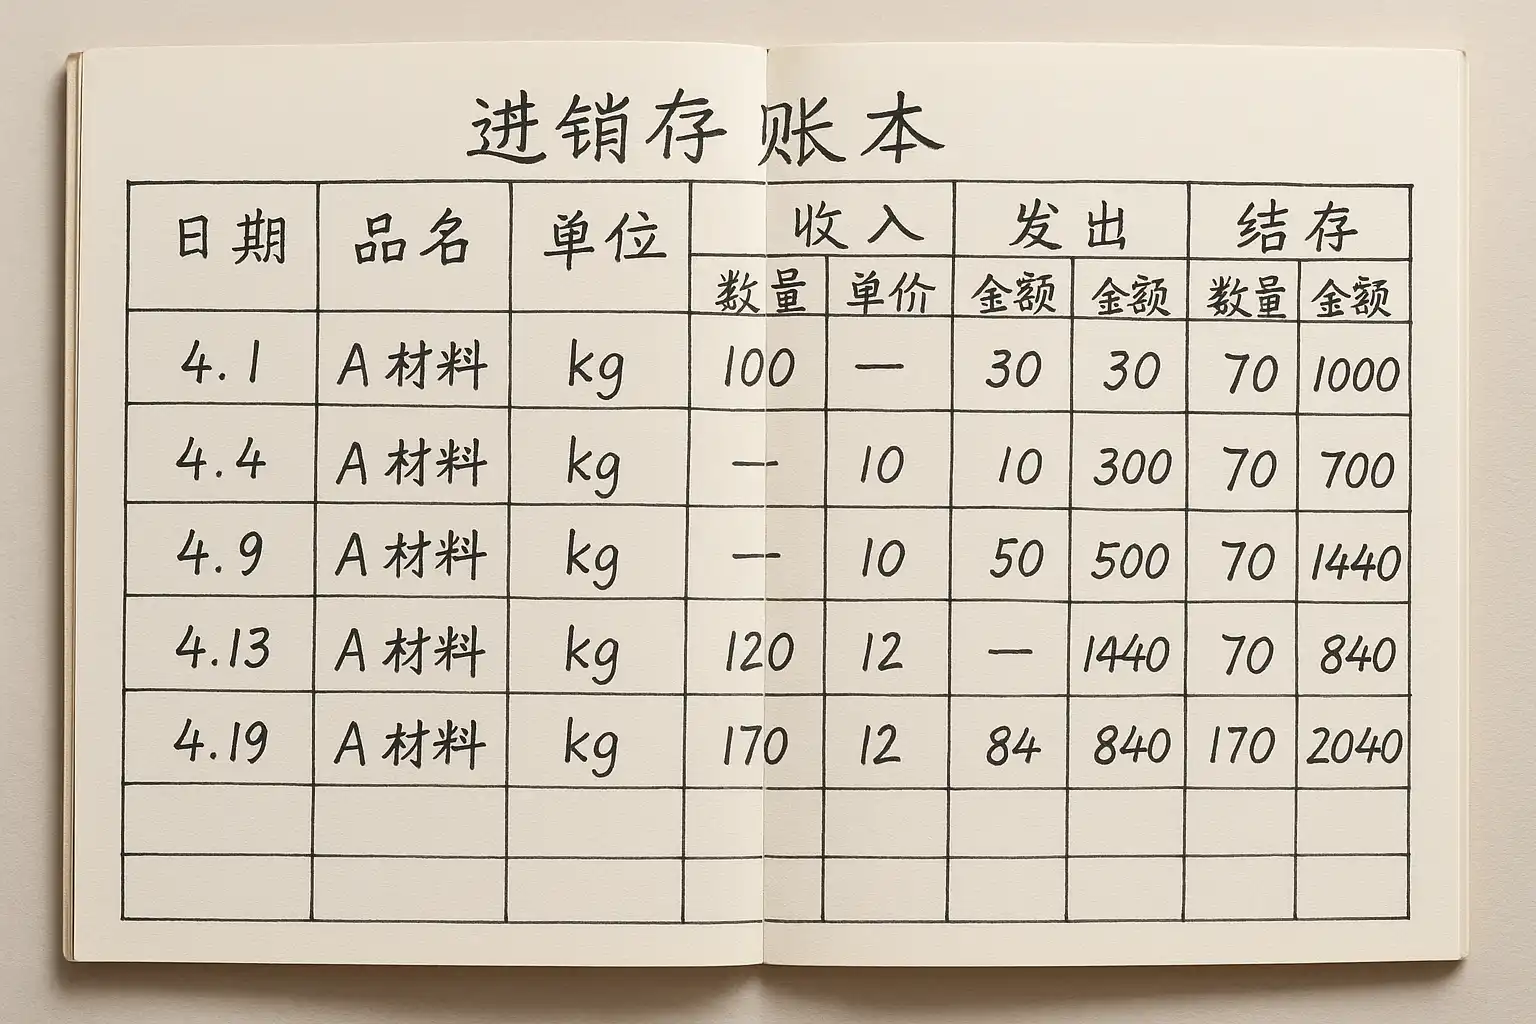 进销存账本
日期 品名 单位 收入 发出 结存
数量 单价 金额 金额 数量 金额
4.1 A材料 kg 100 — 30 30 70 1000
4.4 A材料 kg — 10 10 300 70 700
4.9 A材料 kg — 10 50 500 70 1440
4.13 A材料 kg 120 12 — 1440 70 840
4.19 A材料 kg 170 12 84 840 170 2040